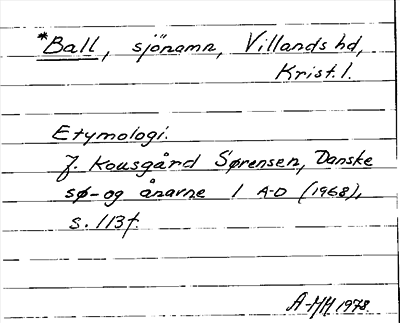 *Ball, sjönamn, Villands hd,
Krist. l.
Etymologi.
J. Kousgård Sørensen, Danske
sø- og ånavne 1 A-D (1968),
s. 113 f.
A-MH 1978.